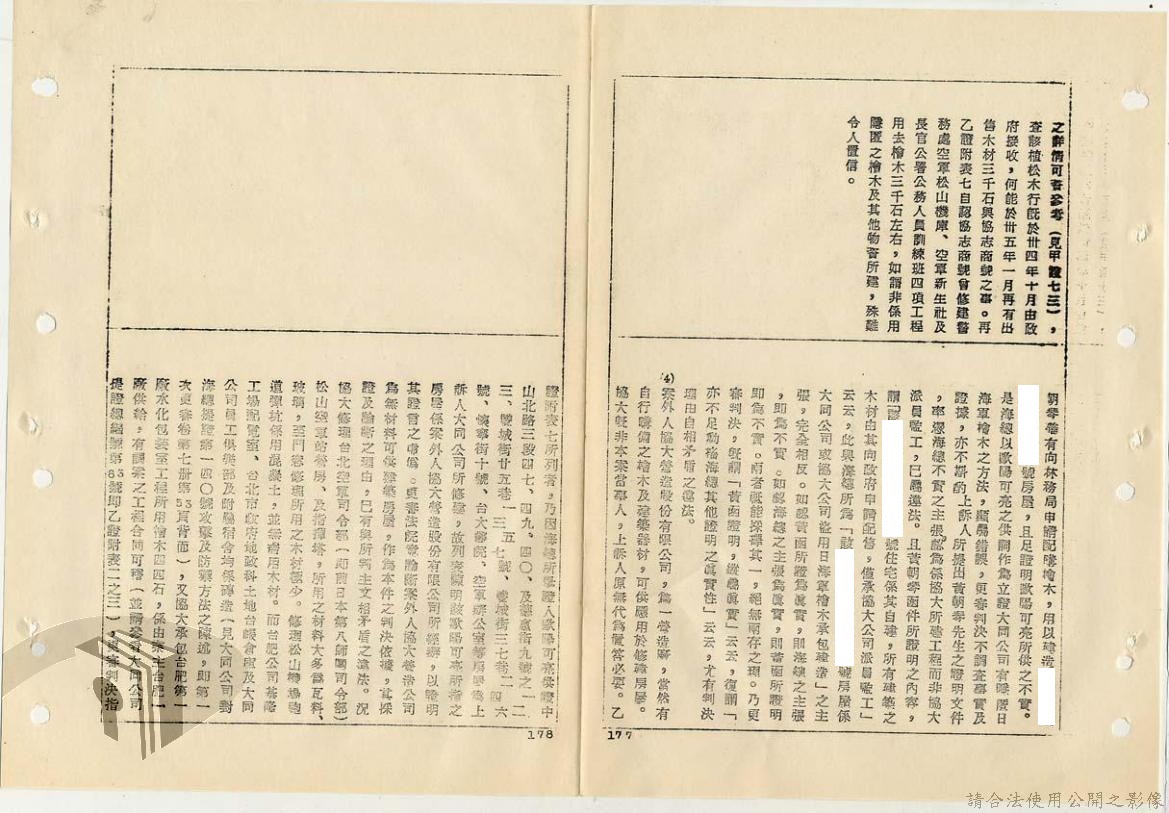 之詳情可資參考（見甲證七三），
查該植松木行既於卅四年十月由政
府接收，何能於卅五年一月再有出
售木材三千石與協志商號之事。再
乙證附表七自認協志商號曾修建警
務處空軍松山機庫、空軍新生社及
長官公署公務人員訓練班四項工程
用去檜木三千石左右，如謂非係用
隱匿之檜木及其他物資所建，殊難
令人置信。
朝琴卷有向林務局申請配購檜木，用以建造
號房屋，且足證明歐陽可亮所供之不實。
是海總以歐陽可亮之供詞作為立證大同公司有隱匿日
海軍檜木之方法，顯屬錯誤，更審判決不調查事實及
證據，亦不斟酌上訴人所提出黃朝琴先生之證明文件
，率憑海總不實之主張認為係協大所建工程而非協大
派員監工，已屬違法。且黃朝琴函件所證明之內容，
謂
號住宅係其自建，所有建築之
木材由其向政府申請配售，僅承協大公司派員監工」
云云，此與海總所為「該
號房屋係
大同公司或協大公司盜用日海軍檜木承包建造」之主
張，完全相反。如認黃函所證為真實，則海總之主張
，即為不實。如認海總之主張為真實，則黃函所證明
即為不實。兩者祇能採擇其一，絕無兩存之理。乃更
審判決，既謂「黃函證明，縱屬真實」云云，復謂「
亦不足動搖海總其他證明之真實性」云云，尤有判決
理由自相矛盾之違法。
(4)
案外人協大營造股份有限公司，為一營造廠，當然有
自行購備之檜木及建築器材，可供應用於修建房屋。
協大既非本案當事人，上訴人原無代為置答必要。乙
177
證附表七所列者，乃因海總所舉證人歐陽可亮供證中
山北路三段四七、四九、四〇、及農安街九號之一二
三、雙城街廿五巷一三五七號、雙城街三七巷二四六
號、懷寧街十號、台大醫院、空軍辦公室等房屋為上
訴人大同公司所修建，故列表說明該歐陽可亮所指之
房屋係案外人協大營造股份有限公司所經辦，以證明
其證言之虛偽。更審法院竟論斷案外人協大營造公司
為無材料可供建築房屋，作為本件之判決依據，其採
證及論斷之理由，已有與所判主文相矛盾之違法。況
協大修理台北空軍司令部（即前日本第八師團司令部）
松山空軍站營房、及指揮塔，所用之材料大多為瓦料、
玻璃，至門窗修理所用之木材極少。修理松山機場跑
道彈坑係用混凝土，並無需用木材。而台肥公司基隆
工場配電室、台北市政府地政科土地台帳倉庫及大同
公司員工俱樂部及附屬宿舍均係磚造（見大同公司對
海總提證第一四〇號攻擊及防禦方法之陳述，即第一
次更審卷第七册第53頁背面），又協大承包台肥第一
廠水化包裝室工程所用檜木四四石，係由業主台肥一
廠供給，有調案之工程合同可稽（並請參看大同公司
提證總編號第83號即乙證附表二之三），更審判決指
178
請合法使用公開之影像